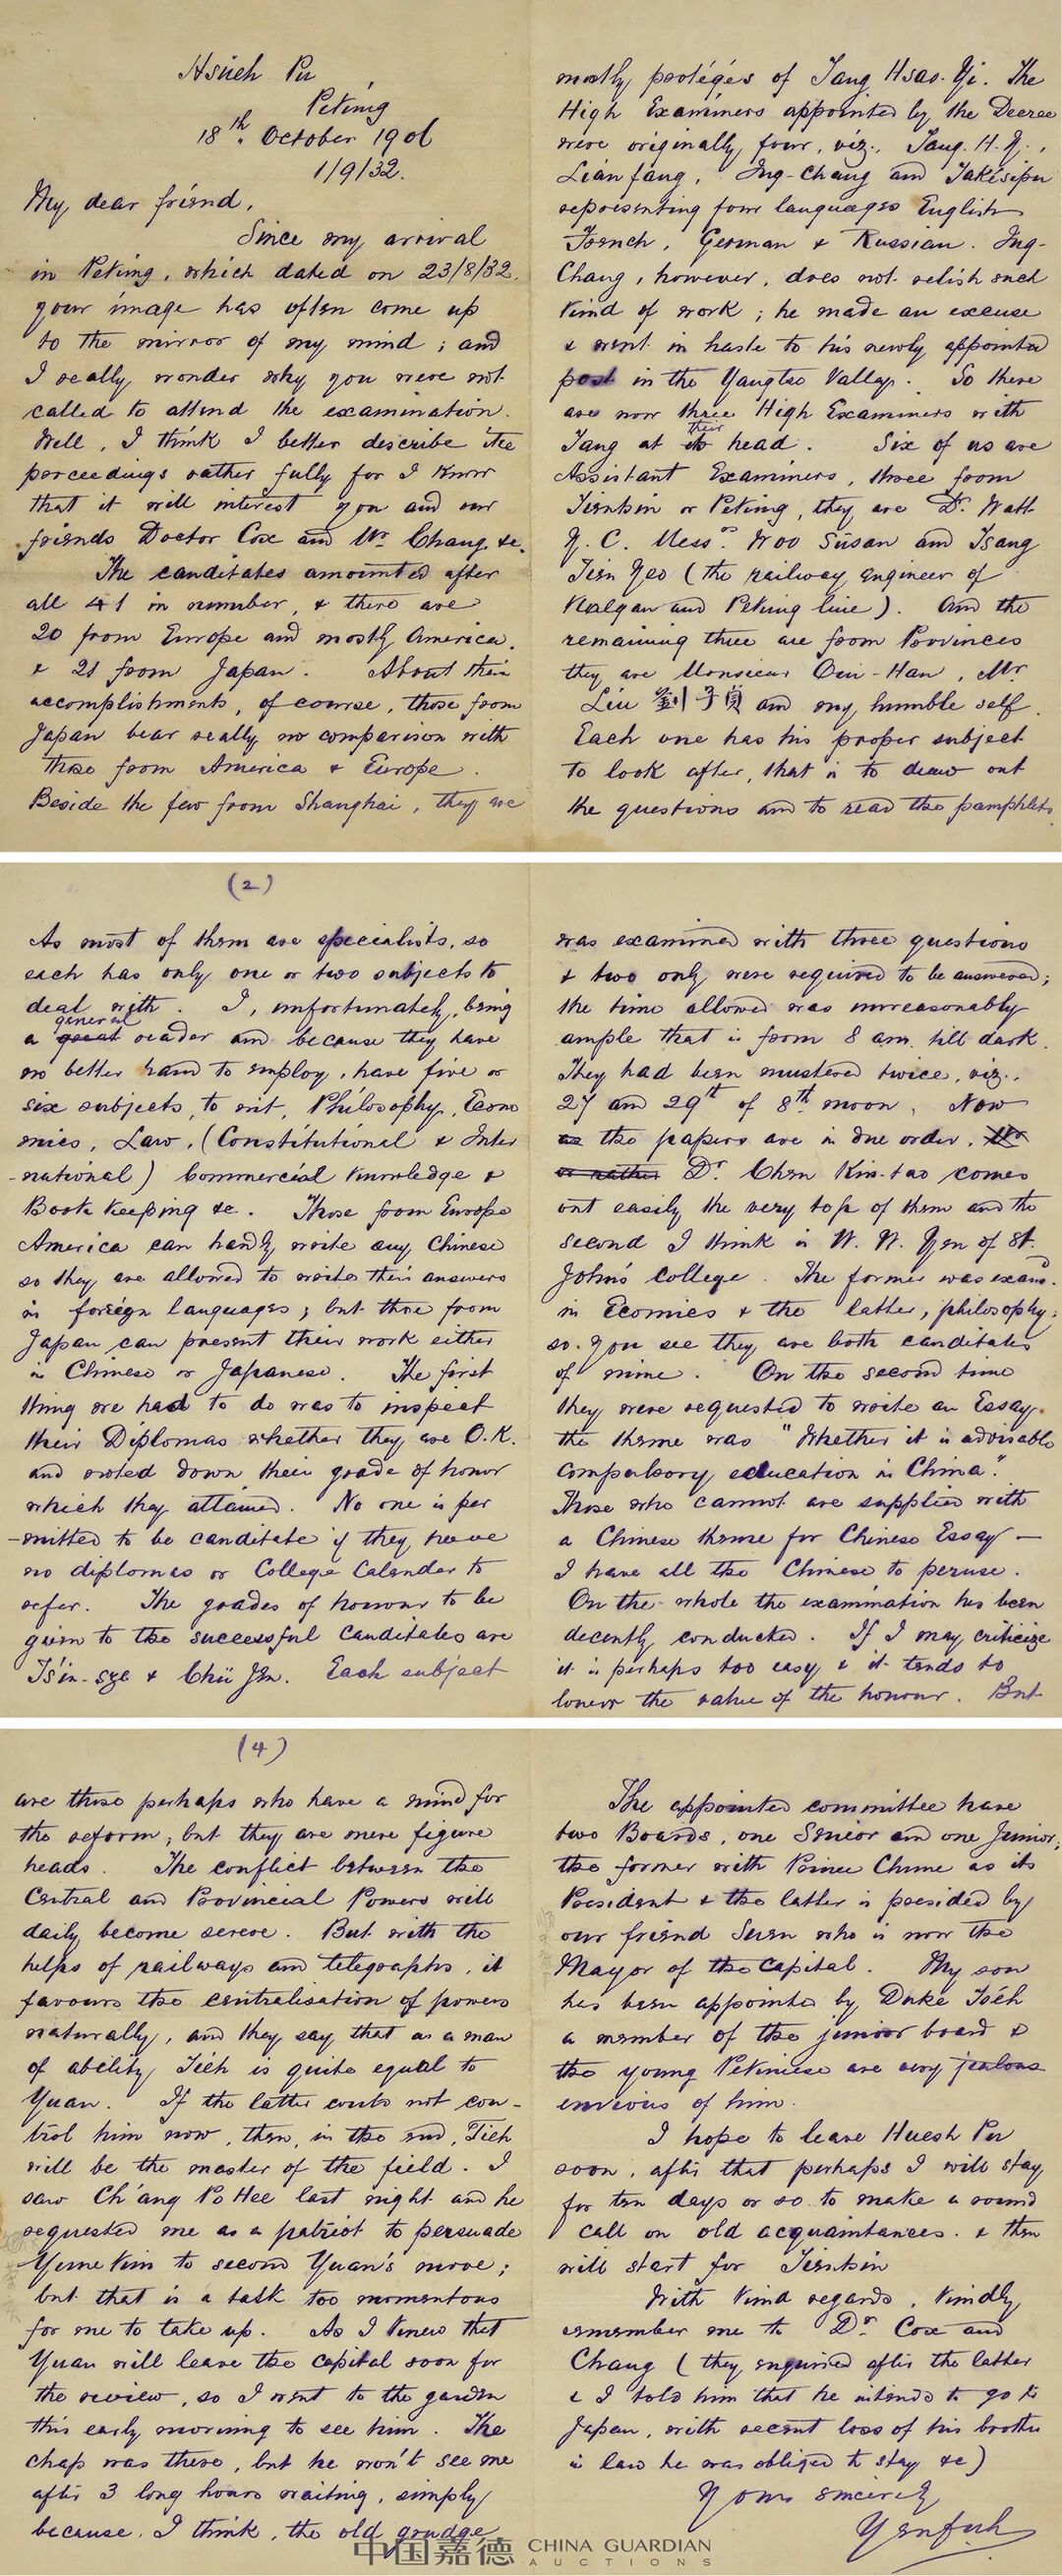 Hsüeh Pu
Peking
18th October 1906
1/9/32.
My dear friend,
Since my arrival
in Peking, which dated on 23/8/32,
your image has often come up
to the mirror of my mind; and
I really wonder why you were not
called to attend the examination.
Well, I think I better describe the
porceedings rather fully for I know
that it will interest you and our
friends Doctor Cox and Mr Chang &c.
The canditates amounted after
all 41 in number, & there are
20 from Europe and mostly America,
& 21 from Japan. About their
accomplishments, of course, those from
Japan bear really no comparison with
those from America & Europe.
Beside the few from Shanghai, they are
mostly protégés of Tang Hsao-Yi. The
High Examiners appointed by the Decree
were originally four, viz., Tang. H. Y.,
Lian fang, Ing-Chang and Takésipu
representing four languages English
French, German & Russian. Ing-
Chang, however, does not relish such
kind of work; he made an excuse
& went in haste to his newly appointed
post in the Yangtse Valley. So there
are now three High Examiners with
Tang at its their head. Six of us are
Assistant Examiners, three from
Tientsin or Peking, they are Dr. Watt
Y. C. Messrs. Woo Susan and Tsang
Tien Yeo (the railway engineer of
Kalgan and Peking line). And the
remaining three are from Provinces
they are Monsieur Ou-Han, Mr
Liu 劉子貞 and my humble self.
Each one has his proper subject
to look after, that is to draw out
the questions and to read the pamphlets.
(2)
As most of them are specialists, so
each has only one or two subjects to
deal with. I, unfortunately, being
a great general reader and because they have
no better hand to employ, have five or
six subjects, to wit, Philosophy, Econo
mics, Law, (Constitutional & Inter
-national) Commercial knowledge &
Book keeping &c. Those from Europe
America can hardly write any Chinese
so they are allowed to write their answers
in foreign languages; but those from
Japan can present their work either
in Chinese or Japanese. The first
thing we had to do was to inspect
their Diplomas whether they are O.K.
and noted down their grade of honor
which they attained. No one is per
-mitted to be canditate if they have
no diplomas or College Calender to
refer. The grades of honour to be
given to the successful canditates are
Tsin-sze & Chü Jen. Each subject
was examined with three questions
& two only were required to be answered;
the time allowed was unreasonably
ample that is from 8 am. till dark.
They had been mustered twice, viz.,
27 and 29th of 8th moon. Now
as the papers are in due order, the
or rather Dr. Chen Kin-tao comes
out easily the very top of them and the
second I think is W. W. Yen of St.
John's College. The former was examd.
in Ecomics & the latter, philosophy;
so you see they are both canditates
of mine. On the second time
they were requested to write an Essay.
the theme was "Whether it is advisable
compulsory education in China".
Those who cannot are supplied with
a Chinese theme for Chinese Essay —
I have all the Chinese to peruse.
On the whole the examination has been
decently conducted. If I may criticize
it is perhaps too easy & it tends to
lower the value of the honour. But
(4)
are those perhaps who have a mind for
the reform, but they are mere figure
heads. The conflict between the
Central and Provincial Powers will
daily become severe. But with the
helps of railways and telegraphs, it
favours the centralisation of powers
naturally, and they say that as a man
of ability Tieh is quite equal to
Yuan. If the latter could not con-
trol him now, then, in the end, Tieh
will be the master of the field. I
saw Ch'ang Po Hee last night and he
requested me as a patriot to persuade
Yume Kim to second Yuan's move;
but that is a task too momentous
for me to take up. As I knew that
Yuan will leave the capital soon for
the review, so I went to the garden
this early morning to see him. The
chap was there, but he won't see me
after 3 long hours waiting, simply
because, I think, the old grudge
The appointed committee have
two Boards, one Senior and one Junior;
the former with Prince Chune as its
President & the latter is presided by
our friend Suen who is now the
Mayor of the Capital. My son
has been appointed by Duke Tseh
a member of the junior board &
the young Pekinese are very jealous
envious of him.
I hope to leave Huesh Pu
soon, after that perhaps I will stay
for ten days or so to make a round
call on old acquaintances, & then
will start for Tientsin
With kind regards, kindly
remember me to Dr. Cox and
Chang (they enquired after the latter
& I told him that he intends to go to
Japan, with recent loss of his brother
in law he was obliged to stay &c)
Yours sincerely
Yenfuh
中国嘉德 CHINA GUARDIAN
AUCTIONS